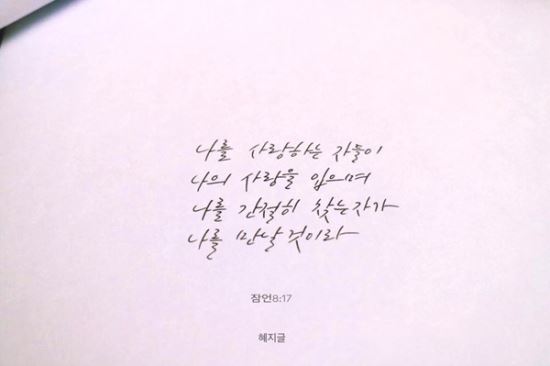 나를 사랑하는 자들이
나의 사랑을 입으며
나를 간절히 찾는자가
나를 만날것이라
잠언8:17
혜지글